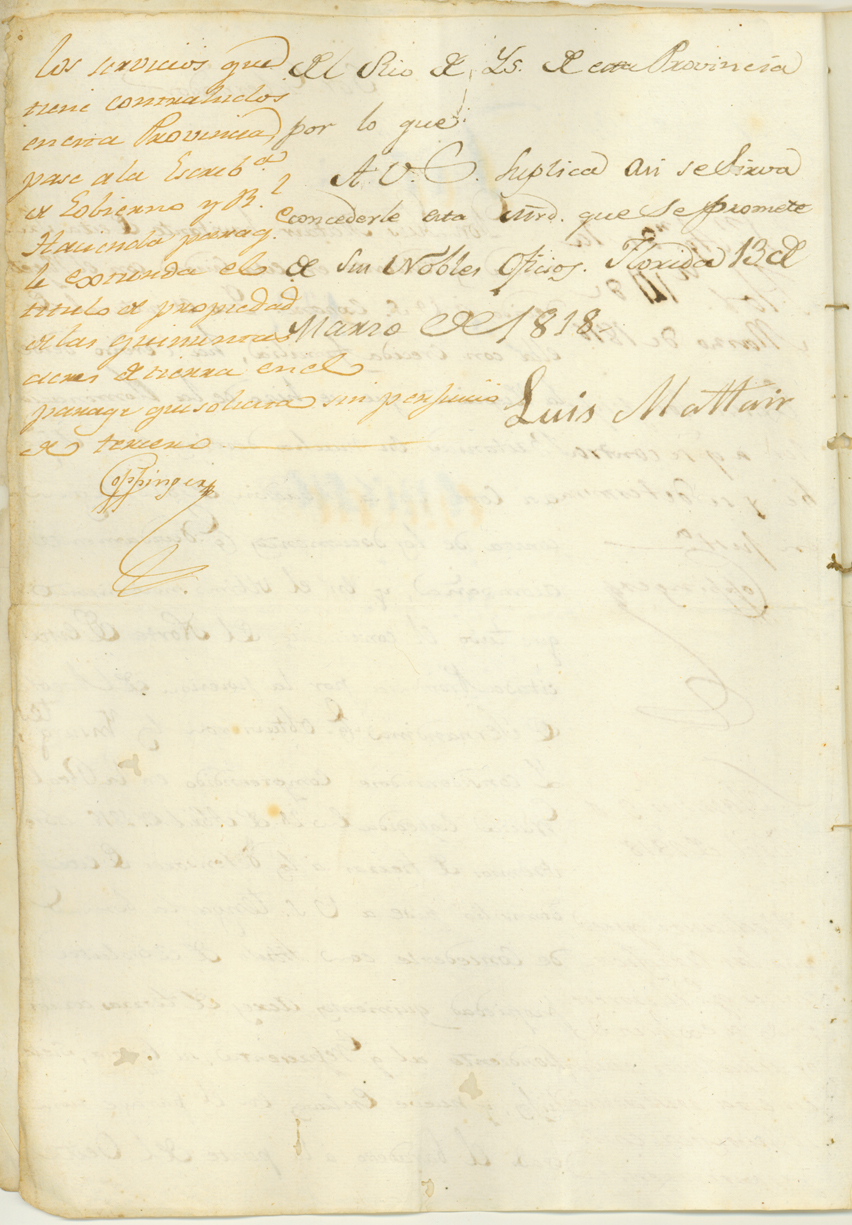 los servicios que
tiene contrahidos
en esta Provincia
pase a la Escrib.ª
de Gobierno y R.l
Hacienda para q.
le extienda el
titulo de propiedad
de las quinientas
acres de tierra en el
parage que solicita sin perjuicio
de tercero
Coppinger
del Rio de Ys. de esta Provincia
por lo que
A. V. S. Suplica asi se Sirva
concederle esta mrd. que se promete
de sus Nobles Oficios. Florida 13 de
Marzo de 1818
Luis Mattair